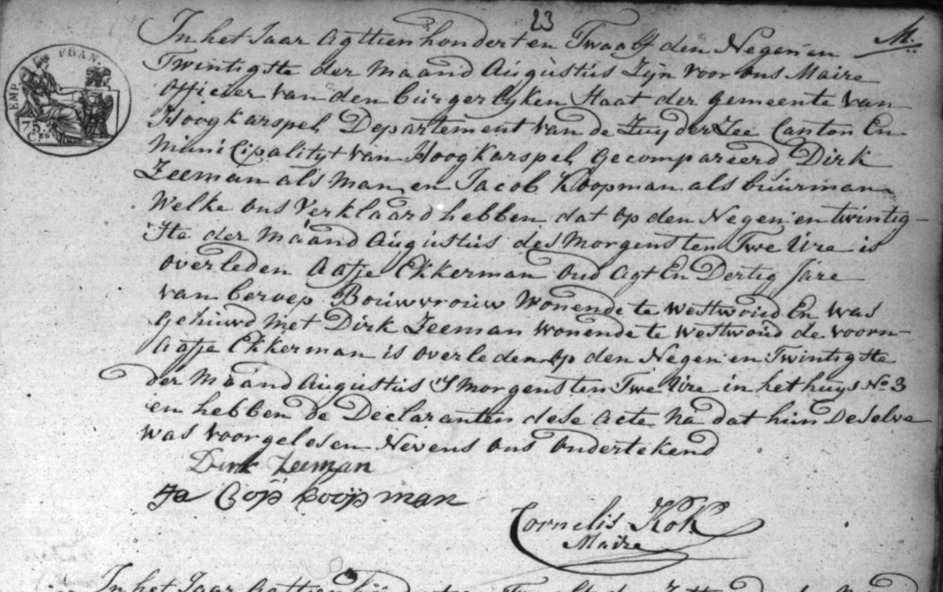 23
M.
In het Jaar Agttienhondert en Twaalf den Negen en
Twintigste der maand Augustus Zijn voor ons Maire
officier van den burgerlyken Staat der gemeente van
Hoogkarspel Departement van de Zuyder Zee Canton En
municipalityt van Hoogkarspel gecompareerd Dirk
Zeeman als man en Jacob Koopman als buurman
Welke ons verklaard hebben dat op den Negen en twintig-
ste der Maand Augustus des Morgens ten Twe Ure is
overleden Aafje Ekkerman oud Agt En Dertig Jare
van beroep Bouwvrouw Wonende te westwoud En was
gehuwd met Dirk Zeeman wonende te westwoud de voorn-
Aafje Ekkerman is overleden op den Negen en Twintigste
der Maand Augustus S morgens ten Twe Ure in het huys No 3
en hebben de Declaranten dese acte na dat hun deselve
was voorgelesen Nevens ons ondertekend
Dirk Zeeman
Ja Cop coop man
Cornelis Kok
Maire
FRAN.
75
In het Jaar Agttien